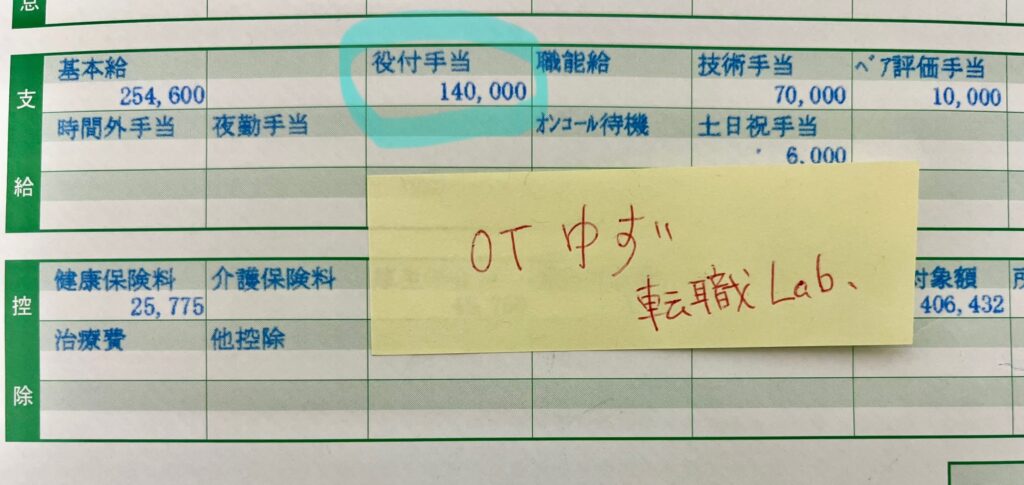 支給
基本給 役付手当 職能給 技術手当 ベア評価手当
254,600 140,000 70,000 10,000
時間外手当 夜勤手当 オンコール待機 土日祝手当
6,000
OT ゆず
転職Lab、
控除
健康保険料 介護保険料 対象額
25,775 406,432
治療費 他控除